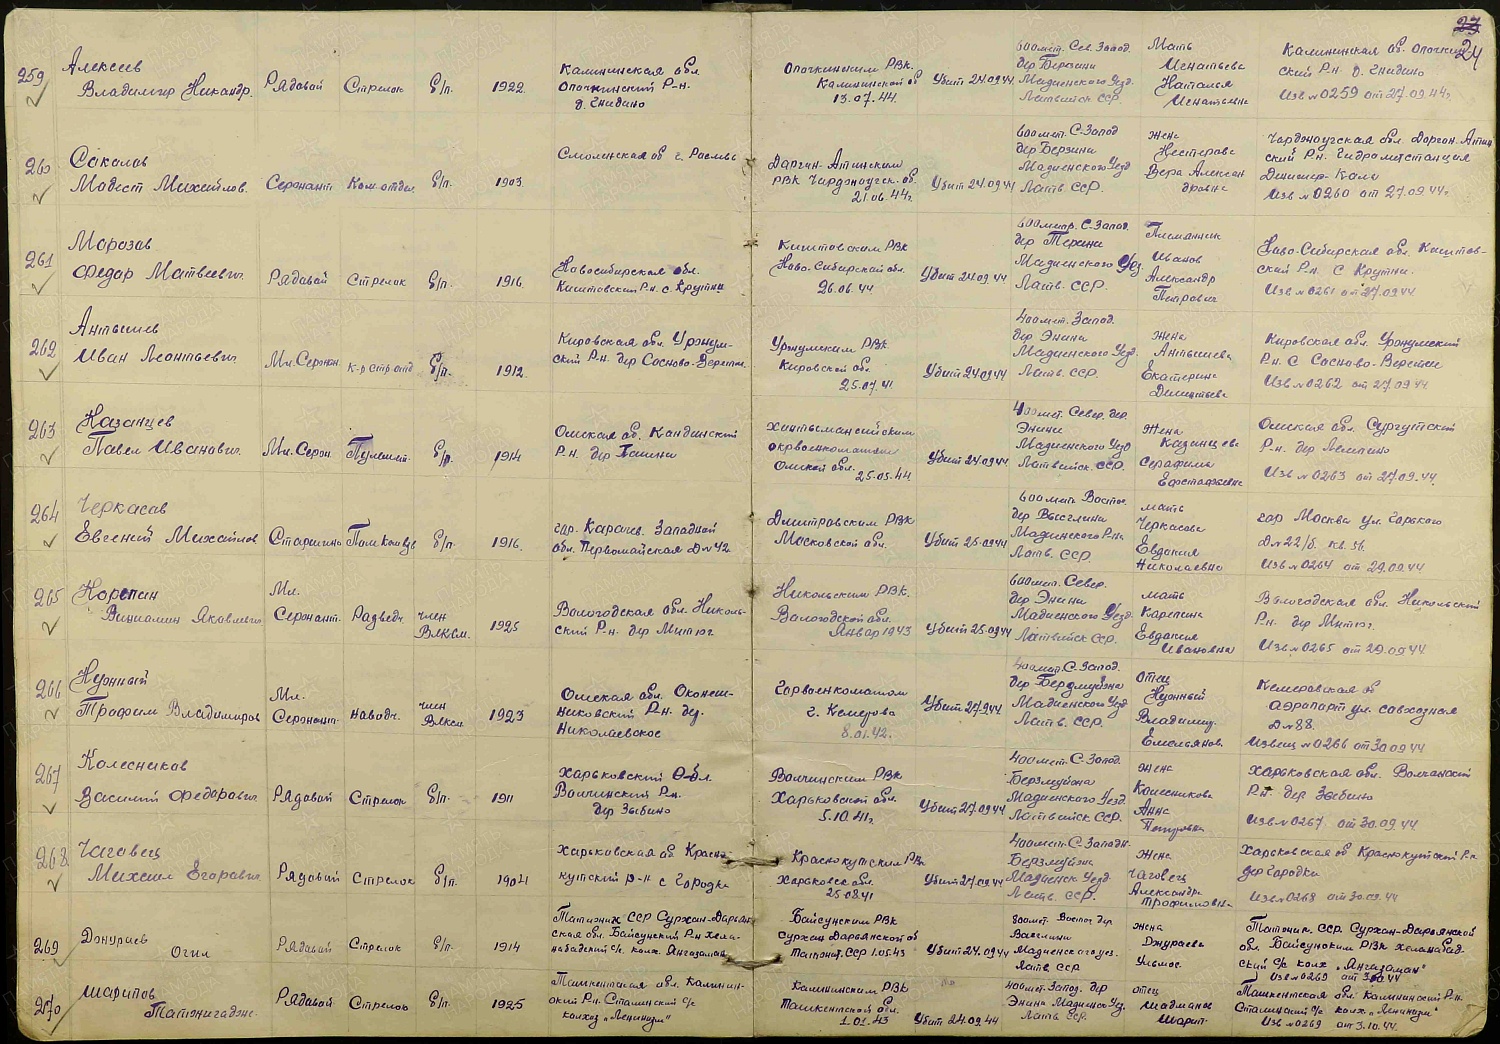 24
259
Алексеев
Владимир Никандр.
Рядовой
Стрелок
б/п.
1922
Калининская обл
Опочкинский Р-н.
д. Гнидино
Опочкинским РВК.
Калининской об
13.07.44.
Убит 24.09.44
600мет. Сев. Запад.
дер Берзини
Мадиенского Уезд.
Латвийск ССР.
Мать
Игнатьева
Наталья
Игнатьевна
Калининская об. Опочкин
ский Р-н. д. Гнидино
Изв №0259 от 27.09.44г.
260
Соколов
Модест Михайлов.
Сержант
Ком. отдел.
б/п.
1903
Смоленская об г.
РВК
21.06.44г.
Убит 24.09.44
600мет. С. Запад
дер Берзини
Мадиенского Уезд
Латв ССР.
Жена
Нестерова
Вера Алексан
дровна
ский Р-н. Гидрометстанция
Изв №0260 от 27.09.44г.
261
Морозов
Федор Матвеевич
Рядовой
Стрелок
б/п.
1916
Новосибирская обл.
Кыштовский Р-н. с Крутиха
Кыштовским РВК
Ново-Сибирской обл.
26.06.44
Убит 24.09.44
600метр. С. Запад.
дер
Мадиенского Уез.
Латв. ССР.
Племянник
Иванов
Александр
Петрович
Ново-Сибирская об. Кыштов-
ский Р-н. С Крутиха.
Изв №0261 от 27.09.44
262
Антышев
Иван Леонтьевич
Мл. Сержан
К-р стр. отд
б/п.
1912.
Кировская обл. Уржум-
ский Р-н. дер Сосново-
Уржумским РВК
Кировской об.
25.07.41
Убит 24.09.44
400мет. Запад.
дер Энина
Мадиенского Уезд.
Латв. ССР.
Жена
Антышева
Екатерина
Дементьевна
Кировская об. Уржумский
Р-н. С Сосново-
Изв №0262 от 27.09.44
263
Казанцев
Павел Иванович
Мл. Серж.
Пулемет.
б/р.
1914
Омская об. Кондинский
Р-н. дер
Хантымансийским
окрвоенкоматом
Омской обл.
25.05.44
Убит 24.09.44
400мет. Север. дер.
Энини
Мадиенского Уезд
Латвийск. ССР.
Жена
Казанцева
Серафима
Евстафьевна
Омская обл. Сургутский
Р-н. дер
Изв №0263 от 27.09.44.
264
Черкасов
Евгений Михайлов
Старшина
Пом. Ком Вз
б/п
1916.
гор. Карачев. Западной
обл. Первомайская Д№42.
Дмитровским РВК
Московской обл.
Убит 25.09.44
600мет. Восточ.
дер
Мадиенского Р-на
Латв. ССР.
Мать
Черкасова
Евдокия
Николаевна
гор Москва ул. Горького
Д№22/б. кв. 56.
Изв №0264 от 29.09.44
265
Карепин
Виниамин Яковлевич
Мл.
Сержант.
Разведч.
член
Влксм.
1925
Вологодская обл. Николь-
ский Р-н. дер
Никольским РВК.
Вологодской обл.
Январ 1943
Убит 25.09.44
600мет. Север.
дер Энини
Мадиенского Уезд.
Латвийск ССР.
мать
Карепина
Евдокия
Ивановна
Вологодская обл. Никольский
Р-н. дер
Изв №0265 от 29.09.44
266
Нужный
Трофим Владимиров
Мл.
Сержант.
наводч.
член
Влксм
1923
Омская обл. Оконеш-
никовский Р-н. дер.
Николаевское
Горвоенкоматом
г. Кемерова
8.01.42.
Убит 27.9.44
400мет. С. Запад.
дер Берзмуйжа
Мадиенского Уезд
Латв. ССР.
отец
Нужный
Владимир
Емельянов.
Кемеровская об
Аэрапарт ул. совхозная
Д№88.
Извещ №0266 от 30.09.44
267
Колесников
Василий Федорович
Рядовой
Стрелок
б/п.
1911
Харьковский Обл.
Волчинский Р-н.
дер Зыбино
Волчинским РВК
Харьковской обл.
5.10.41г.
Убит 27.09.44
400мет. С. Запад
Берзмуйжа
Мадиенского Уезд.
Латвийск ССР.
жена
Колесникова
Анна
Петровна
Харьковская обл. Волчанский
Р-н. дер Зыбино
Изв №0267 от 30.09.44
268
Чаговец
Михаил Егорович
Рядовой
Стрелок
б/п.
1904
Харьковская об Красно-
кутский р-н с Городка
Краснокутским РВк
Харьковск обл.
25.08.41
Убит 27.09.44
400мет С. Западн.
Берзмуйжа
Мадиенск Уезд.
Латв. ССР.
Жена
Чаговец
Александра
Трофимовна
Харьковская об Краснокутский Р-н
дер Городка
Изв №0268 от 30.09.44
269
Джураев
Огил
Рядовой
Стрелок
б/п
1914
Таджик ССР Сурхан-Дарьин
ская обл. Байсунский Р-н
с/с. колх.
Байсунским РВК
Сурхан Дарьинской об
Таджик. ССР 1.05.43
Убит 24.09.44
800мет. Восток дер
Мадиенского уез.
Латв ССР
жена
Джураева
Таджик. ССР. Сурхан-Дарьинской
обл. Байсунским РВК
ский с/с колх
Изв №0269 от 3.10.44
270
Шарипов
Рядовой
Стрелок
б/п
1925
Ташкентская обл. Калинин-
ский Р-н. Сталинский с/с
колхоз „Ленинизм"
Калининским РВК
Ташкентской об.
1.01.43
Убит 24.09.44
400мет. Запад. дер
Энина Мадиенск Уез.
Латв ССР.
отец
Шадманов
Шарип.
Ташкентская обл. Калининский Р-н.
Сталинский с/с колх. „Ленинизм"
Изв №0269 от 3.10.44.